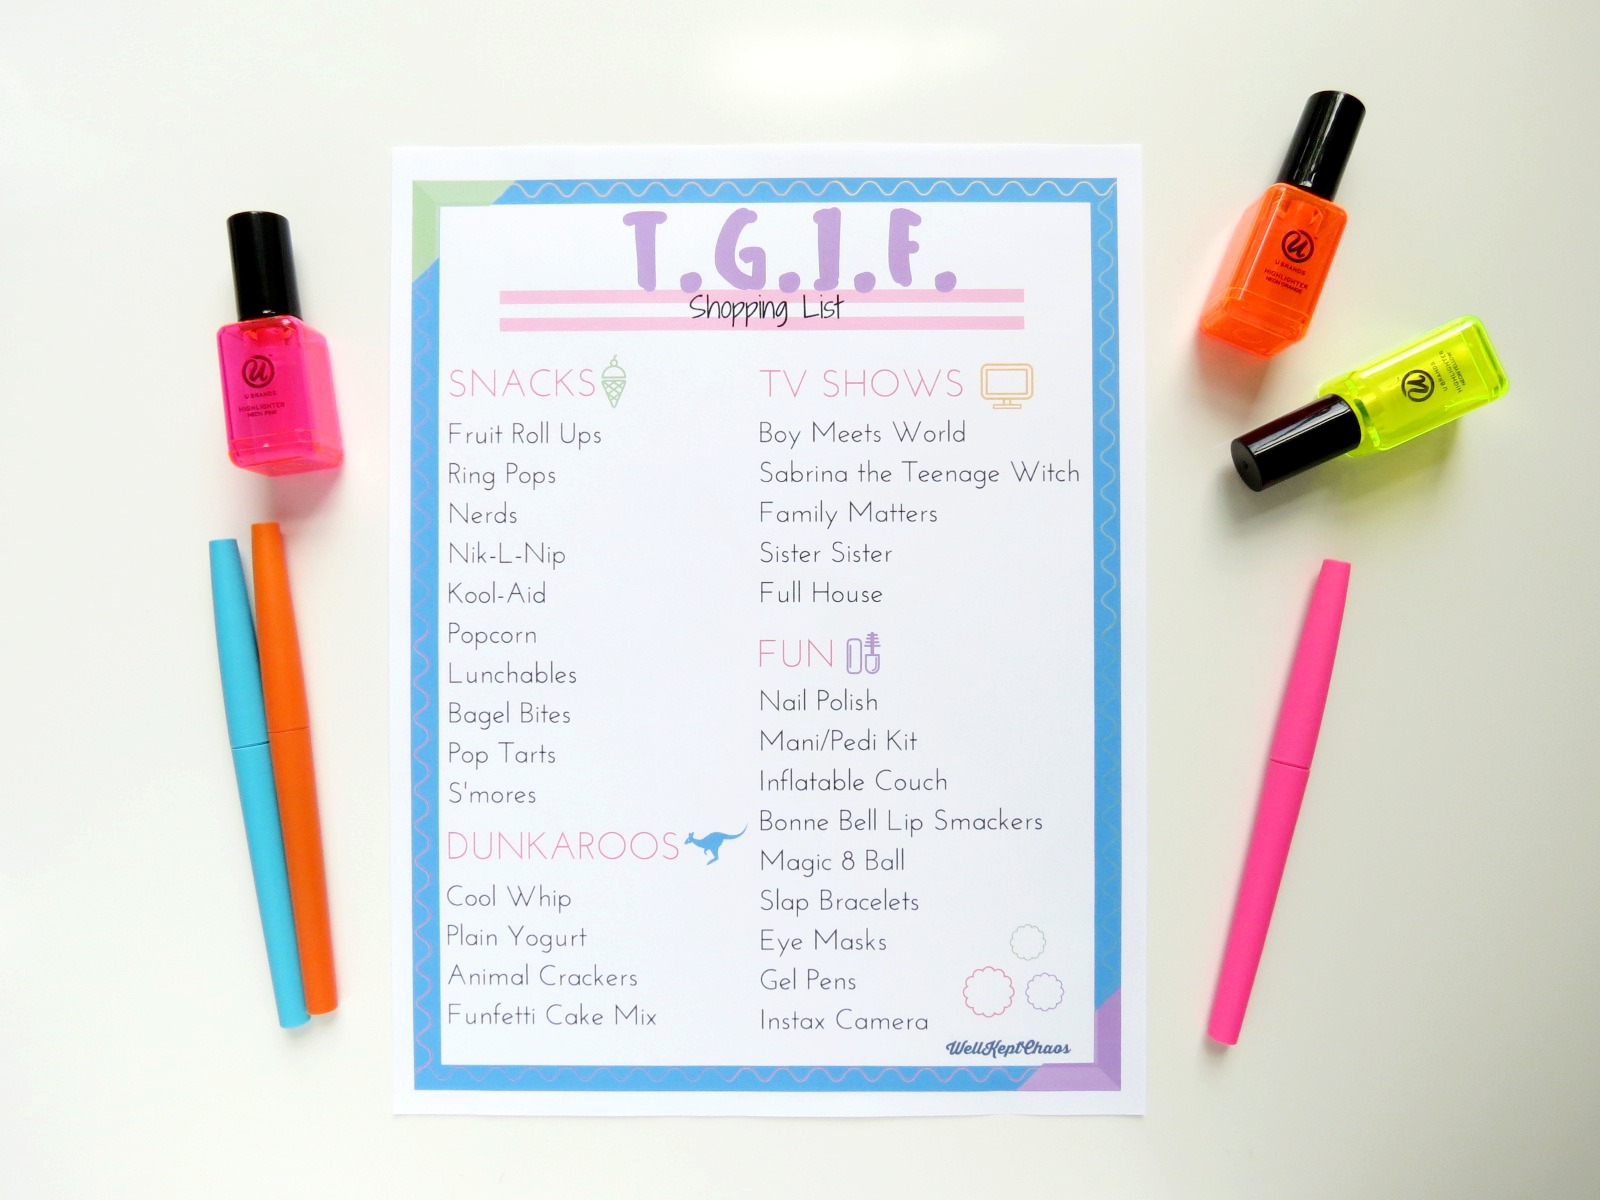 T.G.I.F.
Shopping List
SNACKS
Fruit Roll Ups
Ring Pops
Nerds
Nik-L-Nip
Kool-Aid
Popcorn
Lunchables
Bagel Bites
Pop Tarts
S'mores
DUNKAROOS
Cool Whip
Plain Yogurt
Animal Crackers
Funfetti Cake Mix
TV SHOWS
Boy Meets World
Sabrina the Teenage Witch
Family Matters
Sister Sister
Full House
FUN
Nail Polish
Mani/Pedi Kit
Inflatable Couch
Bonne Bell Lip Smackers
Magic 8 Ball
Slap Bracelets
Eye Masks
Gel Pens
Instax Camera
WellKeptChaos
U
U BRANDS
HIGHLIGHTER
NEON PINK
U
U BRANDS
HIGHLIGHTER
NEON ORANGE
U
U BRANDS
HIGHLIGHTER
NEON YELLOW